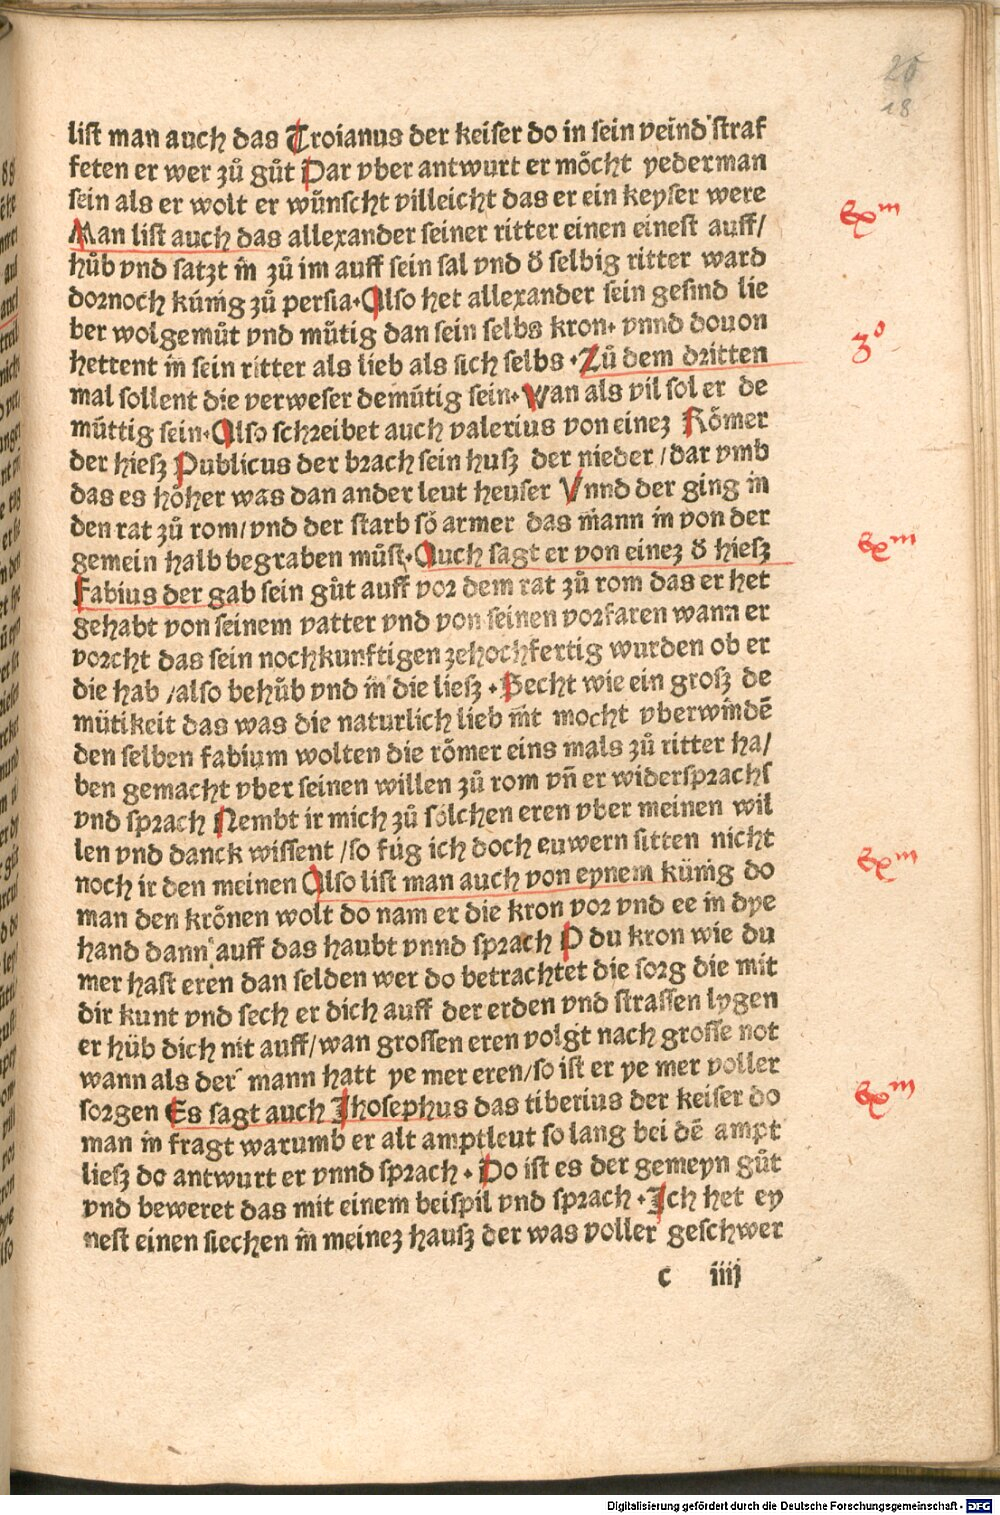 20
18
liſt man auch das Troianus der keiſer do in ſein veind ſtraf
feten er wer zů gůt Dar vber antwurt er möcht yederman
ſein als er wolt er wůnſcht villeicht das er ein keyſer were
exm
Man liſt auch das allexander ſeiner ritter einen eineſt auff/
hůb vnd ſatzt in zů im auff ſein ſal vnd d̕ ſelbig ritter ward
dornoch künig zů perſia. Alſo het allexander ſein geſind lie
ber wolgemůt vnd můtig dan ſein ſelbs kron. vnnd douon
3o
hettent in ſein ritter als lieb als ſich ſelbs. Zů dem dritten
mal ſollent die verweſer demütig ſein. Wan als vil ſol er de
můttig ſein. Alſo ſchreibet auch valerius von einez Römer
der hieſz Publicus der brach ſein huſz der nieder /dar vmb
das es höher was dan ander leut heuſer Vnnd der ging in
den rat zů rom/ vnd der ſtarb ſo armer das mann in von der
exm
gemein halb begraben můſt. Auch ſagt er von einez d̕ hieſz
Fabius der gab ſein gůt auff vor dem rat zů rom das er het
gehabt von ſeinem vatter vnd von ſeinen vorfaren wann er
vorcht das ſein nochkunftigen zehochfertig wurden ob er
die hab /alſo behůb vnd in die lieſz. Secht wie ein groſz de
mütikeit das was die naturlich lieb nit mocht vberwindē
den ſelben fabium wolten die römer eins mals zů ritter ha/
ben gemacht vber ſeinen willen zů rom vn̄ er widerſprachs
vnd ſprach Nembt ir mich zů ſölchen eren vber meinen wil
len vnd danck wiſſent /ſo füg ich doch euwern ſitten nicht
exm
noch ir den meinen Alſo liſt man auch von eynem künig do
man den krönen wolt do nam er die kron vor vnd ee in dye
hand dann auff das haubt vnnd ſprach O du kron wie du
mer haſt eren dan ſelden wer do betrachtet die ſorg die mit
dir kunt vnd ſech er dich auff der erden vnd ſtraſſen lygen
er hüb dich nit auff/ wan groſſen eren volgt nach groſſe not
wann als der mann hatt ye mer eren/ ſo iſt er ye mer voller
exm
ſorgen Es ſagt auch Jhoſephus das tiberius der keiſer do
man in fragt warumb er alt amptleut ſo lang bei dē ampt
lieſz do antwurt er vnnd ſprach. Do iſt es der gemeyn gůt
vnd beweret das mit einem beiſpil vnd ſprach. Ich het ey
neſt einen ſiechen in meinez hauſz der was voller geſchwer
c iiij
Digitalisierung gefördert durch die Deutsche Forschungsgemeinschaft - DFG